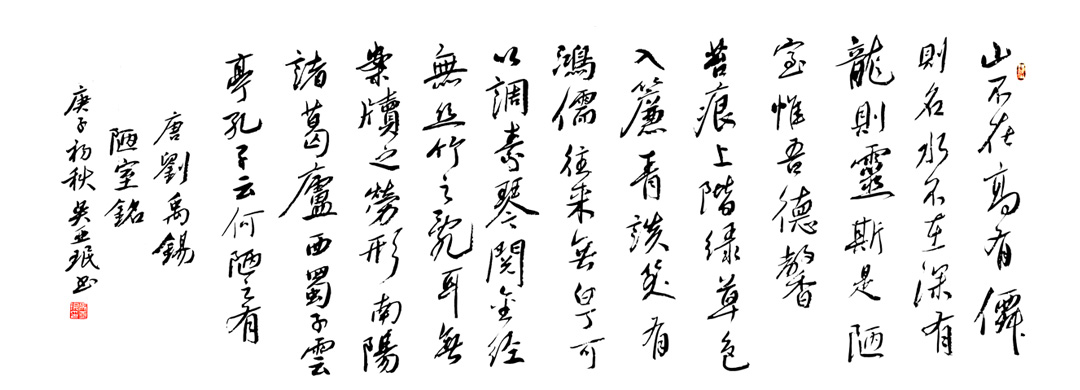 山不在高有僊
則名水不在深有
龍則靈斯是陋
室惟吾德馨
苔痕上階緑草色
入簾青談笑有
鴻儒往来無白丁可
以調素琴閱金經
無丝竹之亂耳無
案牘之勞形南陽
諸葛廬西蜀子雲
亭孔子云何陋之有
唐劉禹錫
陋室銘
庚子初秋吳亚珉书